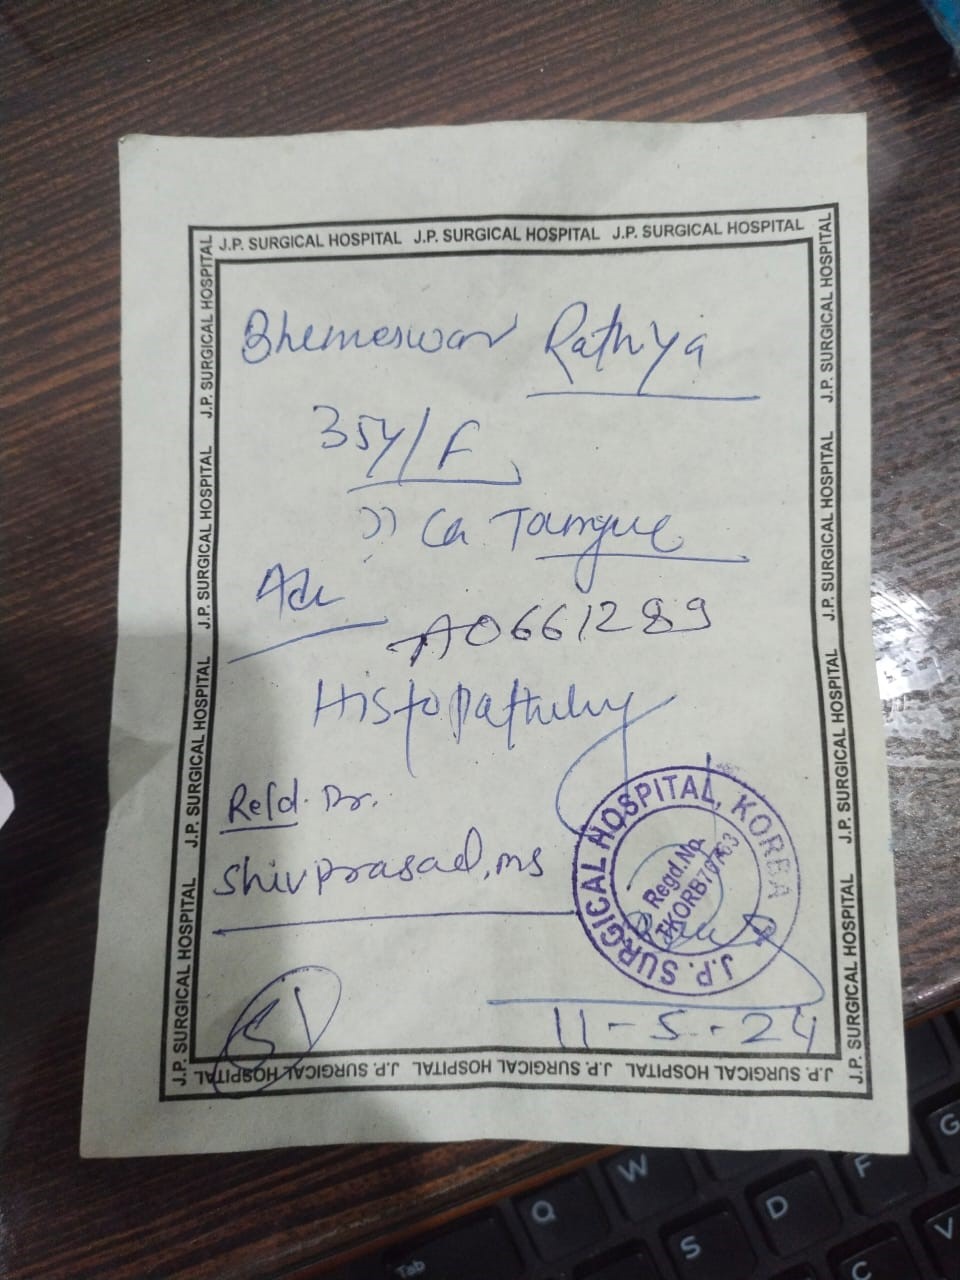 J.P. SURGICAL HOSPITAL J.P. SURGICAL HOSPITAL J.P. SURGICAL HOSPITAL
J.P. SURGICAL HOSPITAL J.P. SURGICAL HOSPITAL J.P. SURGICAL HOSPITAL J.P. SURGICAL HOSPITAL
J.P. SURGICAL HOSPITAL J.P. SURGICAL HOSPITAL J.P. SURGICAL HOSPITAL J.P. SURGICAL HOSPITAL
Bhemeswar Rathiya
35y/F
?? Ca Toungue
Adv
A0661289
Histopathology
Refd. Dr.
Shivprasad, MS
J.P. SURGICAL HOSPITAL, KORBA
Regd.No.
11-5-24
J.P. SURGICAL HOSPITAL J.P. SURGICAL HOSPITAL J.P. SURGICAL HOSPITAL
Q
W
S
D
F
G
C
V
Tab